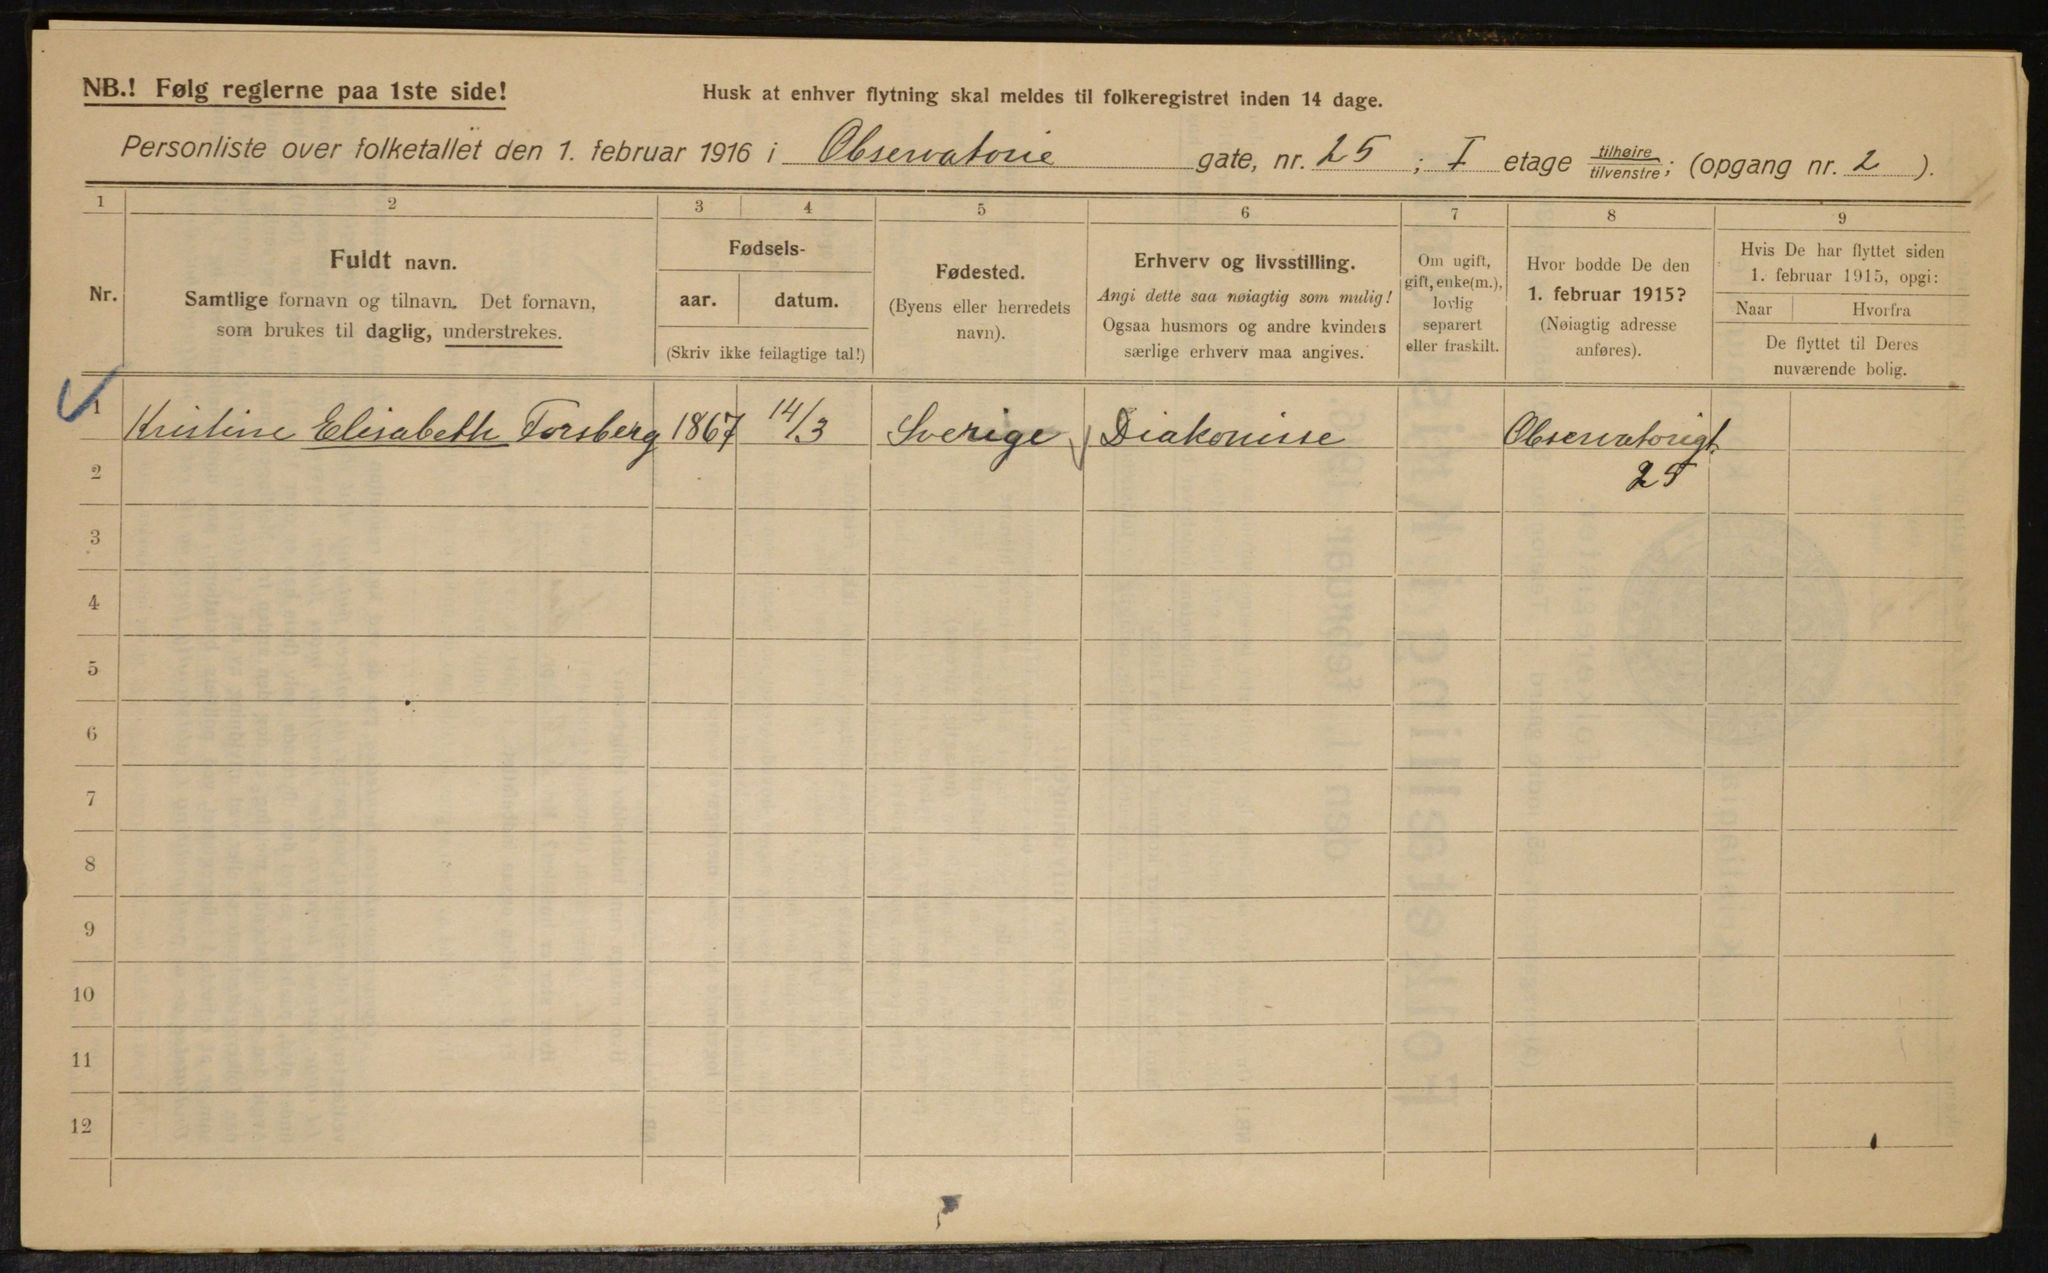 NB.! Følg reglerne paa 1ste side!
Husk at enhver flytning skal meldes til folkeregistret inden 14 dage.
Personliste over folketallet den 1. februar 1916 i Observatorie gate, nr. 25; I etage tilhøire/tilvenstre; (opgang nr. 2).
1 2 3 4 5 6 7 8 9
Nr.
Fuldt navn.
Samtlige fornavn og tilnavn. Det fornavn,
som brukes til daglig, understrekes.
Fødsels-
aar. datum.
(Skriv ikke feilagtige tal!)
Fødested.
(Byens eller herredets
navn).
Erhverv og livsstilling.
Angi dette saa nøiagtig som mulig!
Ogsaa husmors og andre kvinders
særlige erhverv maa angives.
Om ugift,
gift, enke(m.),
lovlig
separert
eller fraskilt.
Hvor bodde De den
1. februar 1915?
(Nøiagtig adresse
anføres).
Hvis De har flyttet siden
1. februar 1915, opgi:
Naar Hvorfra
De flyttet til Deres
nuværende bolig.
1 Kristine Elisabeth Forsberg 1867 14/3 Sverige Diakonisse Observatorigt.
2 25
3
4
5
6
7
8
9
10
11
12